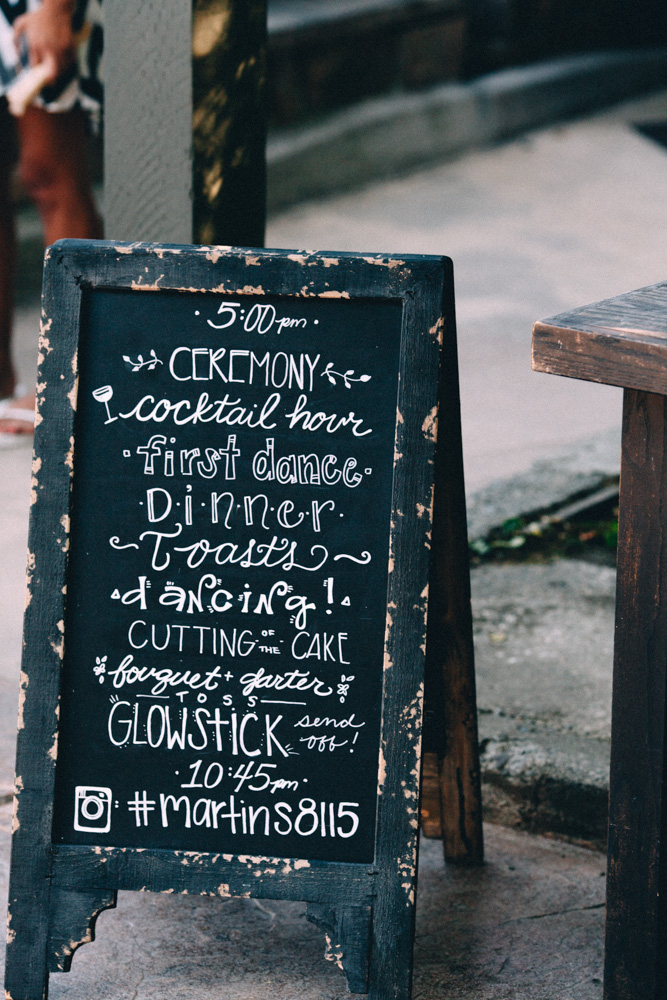 · 5:00 pm ·
CEREMONY
cocktail hour
· first dance ·
D·i·n·n·e·r·
~Toasts~
dancing!
CUTTING OF THE CAKE
bouquet + garter
TOSS
GLOWSTICK send off!
· 10:45 pm ·
: #martins8115